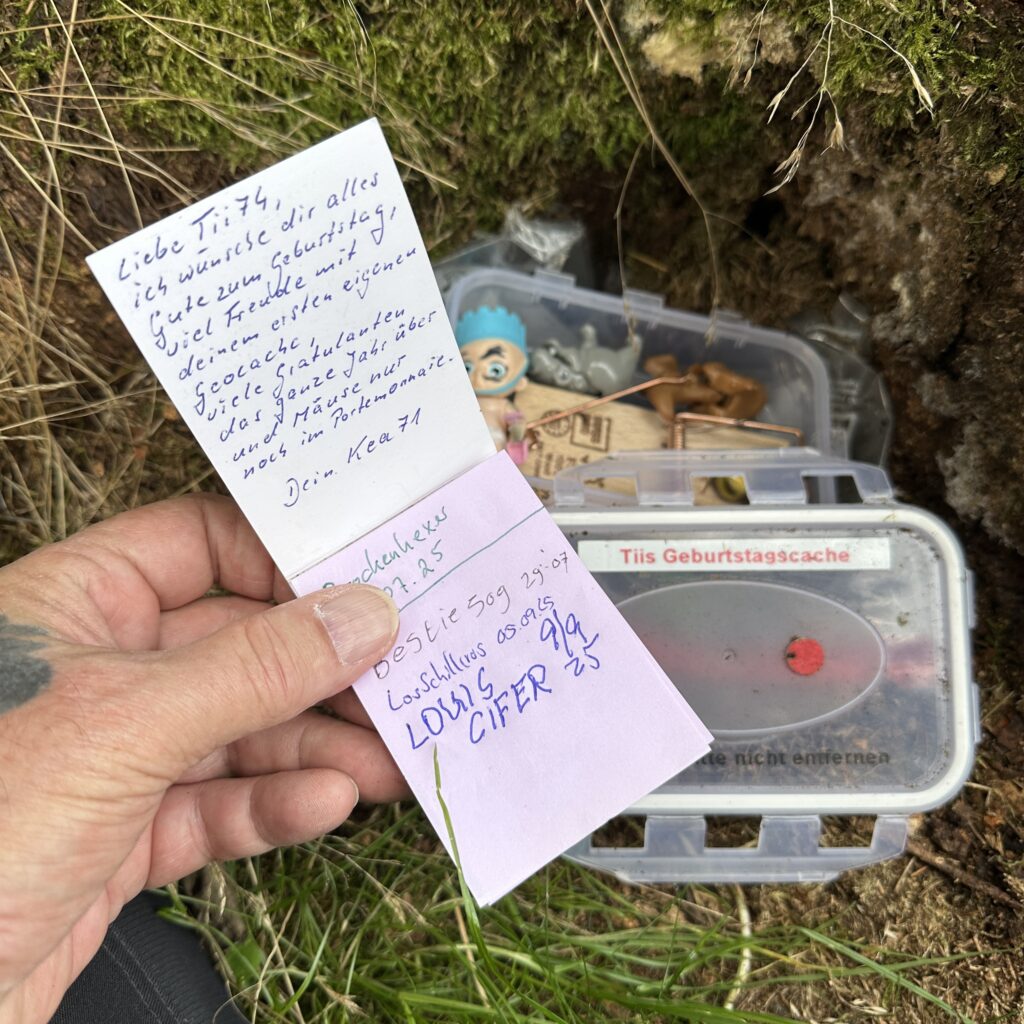 Liebe Tii74,
ich wünsche dir alles
Gute zum Geburtstag,
viel Freude mit
deinem ersten eigenen
Geocache,
viele Gratulanten
das ganze Jahr über
und Mäuse nur
noch im Portemonnaie.
Dein Kea71
07.25
Bestie50g 29.07
LosSchillivos 05.09.25
LOUIS 9/9
CIFER 25
Tiis Geburtstagscache
nicht entfernen